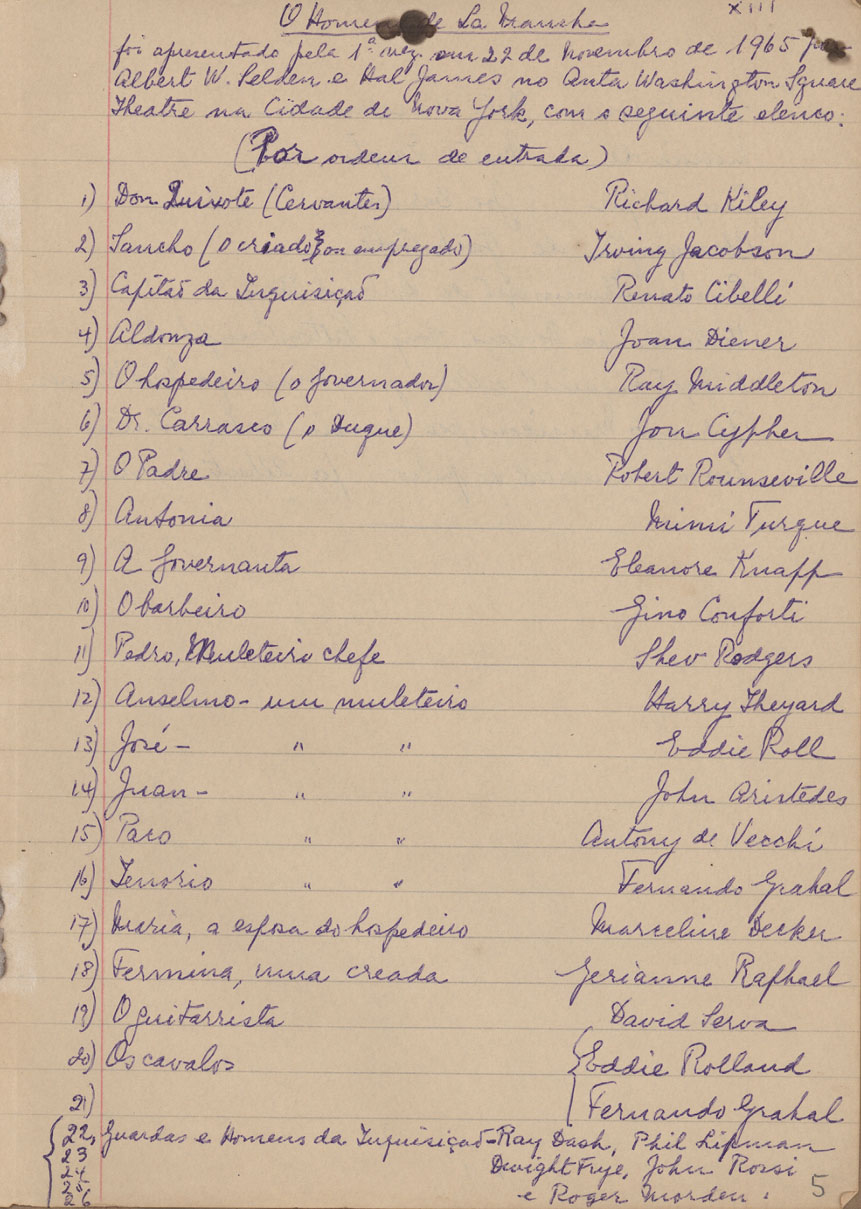 XIII
O Homem de La Mancha
foi apresentado pela 1ª vez em 22 de Novembro de 1965 por
Albert W. Selden e Hal James no Anta Washington Square
Theatre na Cidade de Nova York, com o seguinte elenco:
(Por ordem de entrada)
1) Don Quixote (Cervantes) Richard Kiley
2) Sancho (o criado ou empregado) Irving Jacobson
3) Capitão da Inquisição Renato Cibelli
4) Aldonza Joan Diener
5) O hospedeiro (o Governador) Ray Middleton
6) Dr. Carrasco (o Duque) Jon Cypher
7) O Padre Robert Rounseville
8) Antonia Mimi Turque
9) A Governanta Eleanore Knapp
10) O barbeiro Gino Conforti
11) Pedro, Muleteiro chefe Shev Rodgers
12) Anselmo - um muleteiro Harry Theyard
13) José - " " Eddie Roll
14) Juan - " " John Aristedes
15) Paco " " Antony de Vecchi
16) Tenorio " " Fernando Grahal
17) Maria, a esposa do hospedeiro Marceline Decker
18) Fermina, uma creada Gerianne Raphael
19) O guitarrista David Serva
20) Os cavalos { Eddie Rolland
21) Fernando Grahal
22, Guardas e Homens da Inquisição - Ray Dash, Phil Lipman
23
24 Dwight Frye, John Rossi
25
26 e Roger Morden.
5